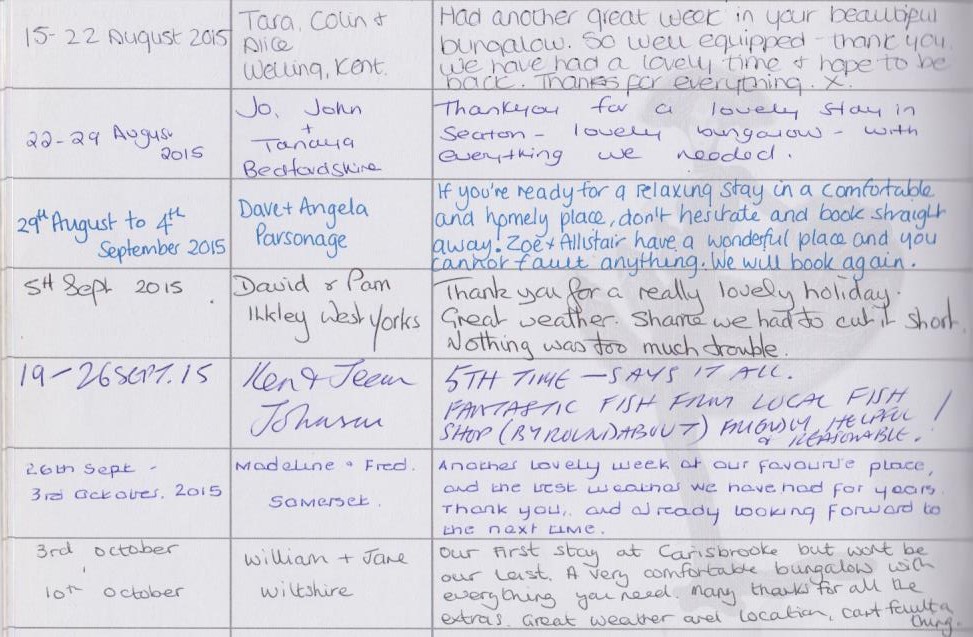 15-22 August 2015
Tara, Colin +
Alice
Welling, Kent.
Had another great week in your beautiful
bungalow. So well equipped - thank you.
We have had a lovely time + hope to be
back. Thanks for everything. X.
22-29 August
2015
Jo, John
+
Bedfordshire
Thankyou for a lovely stay in
Seaton - lovely bungalow - with
everything we needed.
29th August to 4th
September 2015
Dave + Angela
Parsonage
If you're ready for a relaxing stay in a comfortable
and homely place, don't hesitate and book straight
away! Zoe + Allistair have a wonderful place and you
cannot fault anything. We will book again.
5th Sept 2015
David & Pam
Ilkley West Yorks
Thank you for a really lovely holiday.
Great weather. Shame we had to cut it short.
Nothing was too much trouble.
19-26 SEPT. 15
Ken & Jean
Johnson
5TH TIME - SAYS IT ALL.
FANTASTIC FISH FROM LOCAL FISH
SHOP (BY ROUNDABOUT) FRIENDLY, HELPFUL
& REASONABLE. !
26th Sept -
3rd October. 2015
Madeline & Fred.
Somerset.
Another lovely week at our favourite place,
and the best weather we have had for years.
Thank you, and already looking forward to
the next time.
3rd October
10th October
William + Jane
Wiltshire
Our first stay at Carisbrooke but wont be
our last. A very comfortable bungalow with
everything you need. Many thanks for all the
extras. Great weather and location, cant fault a
thing.